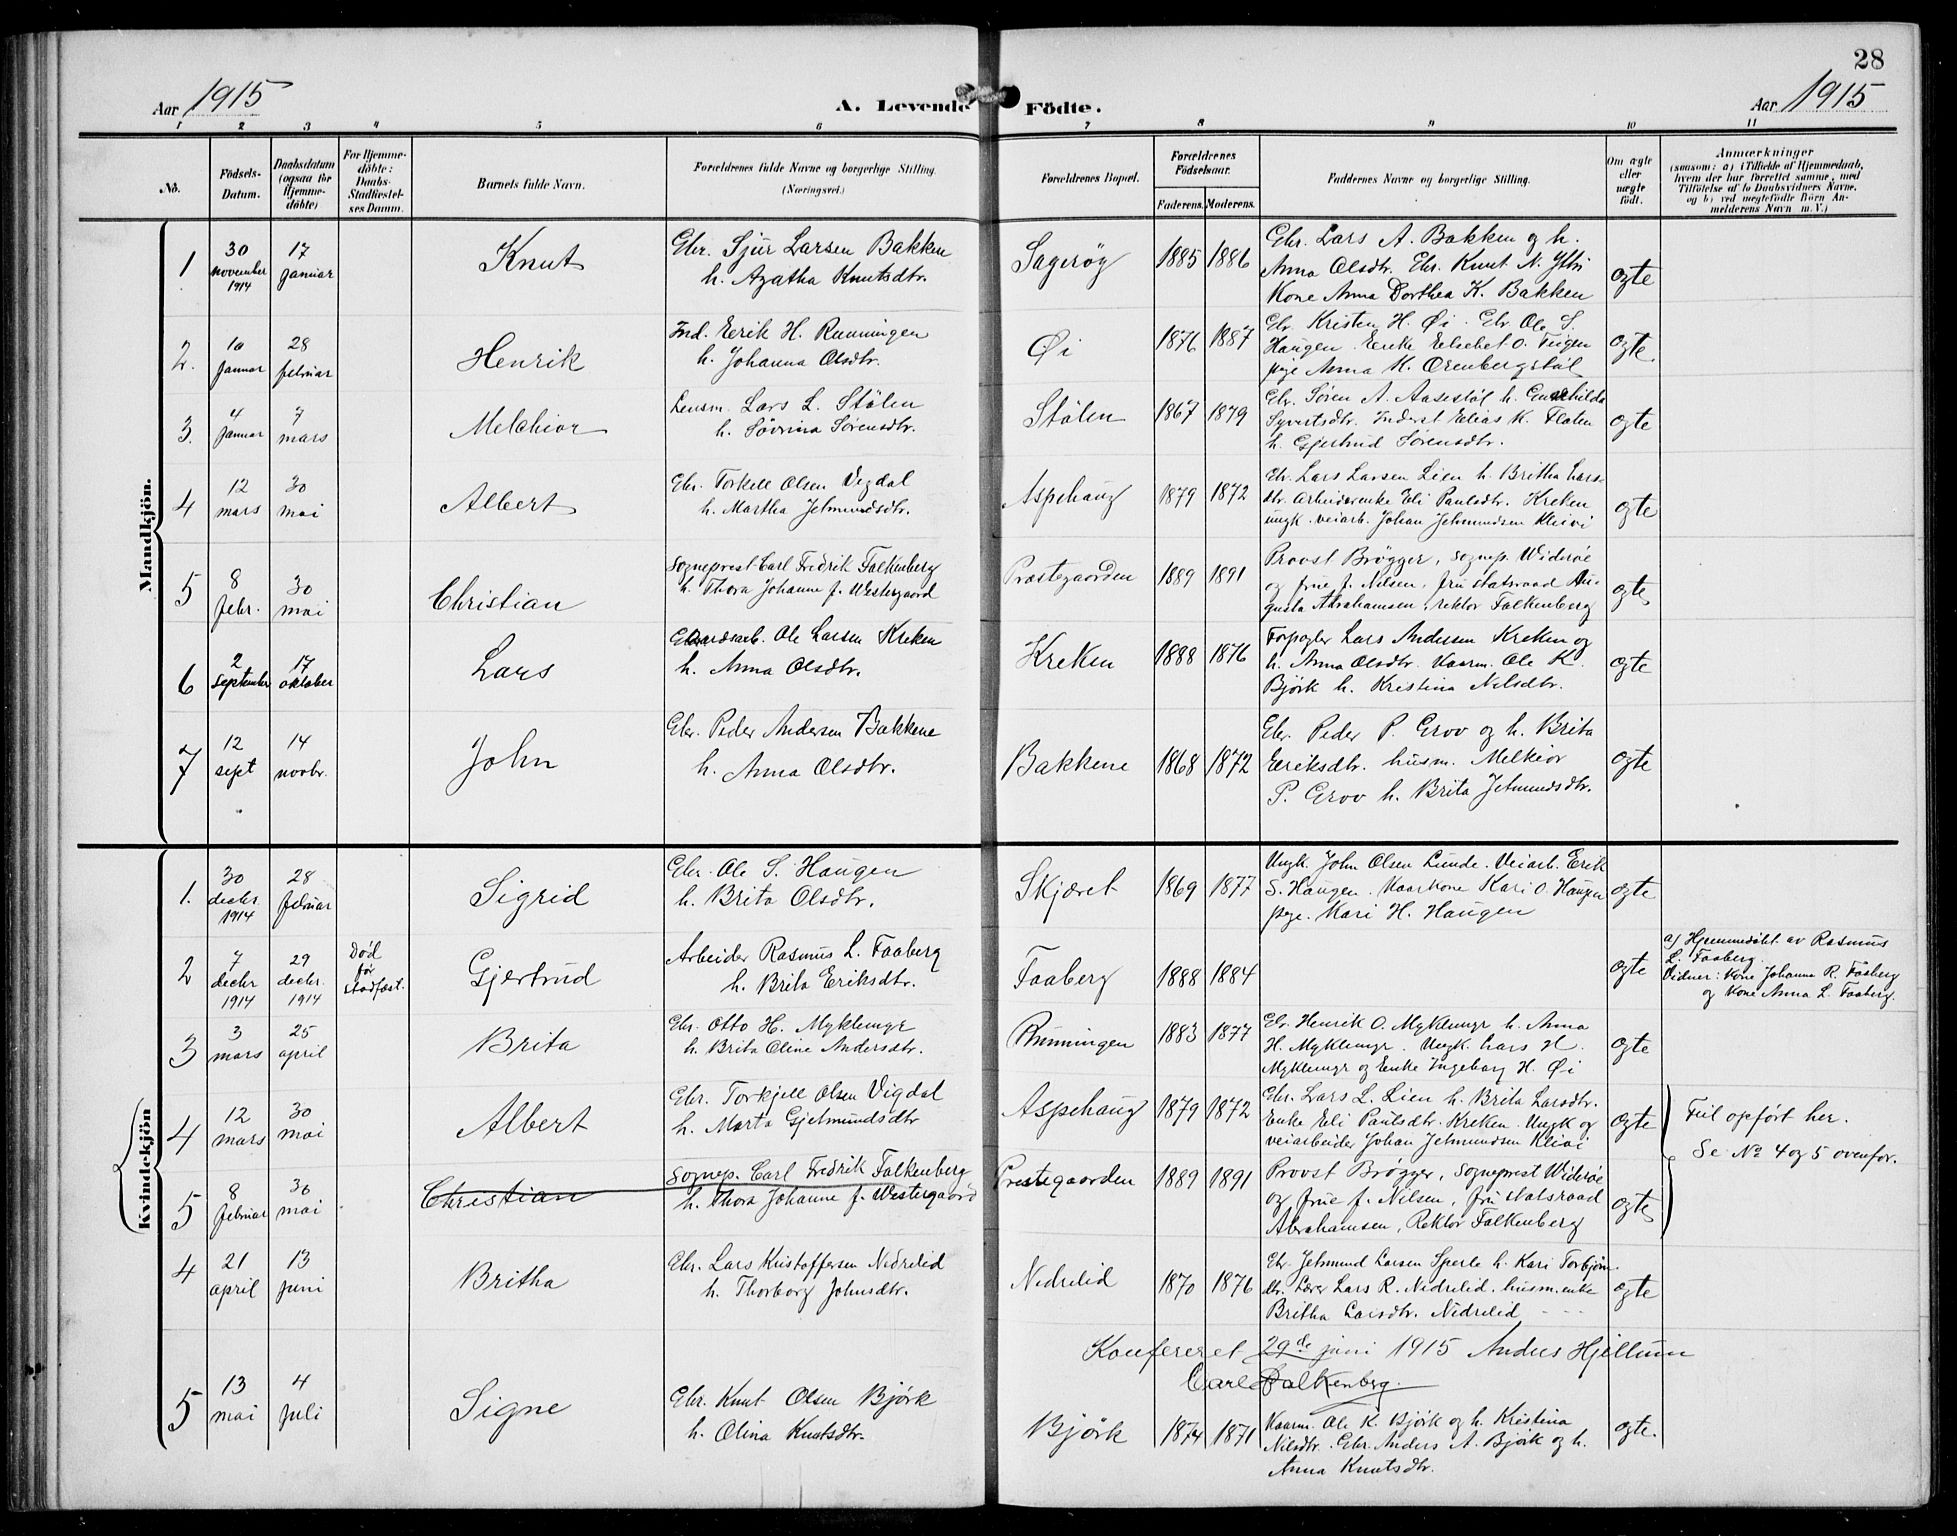 28
Aar 1915
A. Levende Födte.
Aar 1915
1 2 3 4 5 6 7 8 9 10 11
No.
Födsels-Datum.
Daabsdatum (ogsaa for Hjemmedöbte)
For Hjemmedöbte: Daabs-Stadfæstelses Datum.
Barnets fulde Navn.
Forældrenes fulde Navne og borgerlige Stilling. (Næringsvei.)
Forældrenes Bopæl.
Forældrenes Födselsaar.
Faderens. Moderens.
Faddernes Navne og borgerlige Stilling.
Om ægte eller uægte födt.
Anmærkninger
(saasom: a) i Tilfælde af Hjemmedaab, hvem der har forrettet samme, med Tilföielse af to Daabsvidners Navne, og b) ved uægtefödte Börn Anmelderens Navn m. V.)
Mandkjön.
1 30 november 1914 17 januar Knut Gbr. Sjur Larsen Bakken
h. Agatha Knutsdtr.
Sagerøy 1885 1886 Gbr. Lars A. Bakken og h.
Anna Olsdtr. Gbr. Knut N. Ytri
Kone Anna Dorthea K. Bakken
ægte
2. 10 januar 28 februar Henrik Ind. Eerik H. Runningen
h. Johanna Olsdtr.
Øi 1876 1887 Gbr. Kristen H. Øi. Gbr. Ole S.
Haugen. Enke Elsebet O. Tugen
pige Anna H. Orenbergstøl
ægte.
3. 4 januar 7 mars Melchior Lensm. Lars L. Stölen
h. Sövrina Sörensdtr.
Stölen 1867 1879 Gbr. Sören A. Aasestöl h. Gunhilda
Syvertsdtr. Inderst Elias K. Flaten
h. Gjertrud Sörensdtr.
ægte
4 12 mars 30 mai Albert Gbr. Torkell Olsen Vigdal
h. Martha Jetmundsdtr.
Aspehaug 1879 1872 Gbr. Lars Larsen Lien h. Britha Lars-
dtr. Arbeiderenke Eli Paulsdtr. Kreken
ungk. veiarb. Johan Jetmundsen Kleivi
ægte
5 8 febr. 30 mai Christian Sogneprest Carl Fredrik Falkenberg
h. Thora Johanne f. Westergaard
Præstegaarden 1889 1891 Provst Brøgger, sognep. Widerøe
og frue f. Nilsen, fru statsraad Au-
gusta Abrahamsen, rektor Falkenberg
ægte
6 2 september 17 oktober Lars Gaardsarb. Ole Larsen Kreken
h. Anna Olsdtr.
Kreken 1888 1876 Forpagter Lars Andersen Kreken og
h. Anna Olsdtr. Kaarm. Ole K.
Björk h. Kristina Nilsdtr.
ægte
7 12 sept 14 novbr. John Gbr. Peder Andersen Bakkene
h. Anna Olsdtr.
Bakkene 1868 1872 Gbr. Peder P. Grov og h. Brita
Eeriksdtr. husm. Melkior
P. Grov h. Brita Jetmundsdtr.
ægte
Kvindekjön
1. 30 decbr. 1914 28 februar Sigrid Gbr. Ole S. Haugen
h. Brita Olsdtr.
Skjæret 1869 1877 Ungk. John Olsen Lunde. Veiarb. Erik
S. Haugen. Kaarkone Kari O. Haugen
pige. Kari H. Haugen
ægte
2 7 decbr 1914 29 decbr. 1914 Død før stadfæst. Gjertrud Arbeider Rasmus L. Faaberg
h. Brita Eriksdtr.
Faaberg 1888 1884 ægte
a) Hjemmedøbt av Rasmus
L. Faaberg.
Vidner: Kone Johanna R. Faaberg
og Kone Anna L. Faaberg.
3 3 mars 25 april Brita Gbr. Otto H. Myklemyr
h. Brita Oline Andersdtr.
Runningen 1883 1877 Gbr. Henrik O. Myklemyr h. Anna
H. Myklemyr. Ungk. Lars H.
Myklemyr og Enke Ingeborg H. Øi
ægte
4 12 mars 30 mai Albert Gbr. Torkjell Olsen Vigdal
h. Marta Gjetmundsdtr
Aspehaug 1879 1872 Gbr. Lars L. Lien h. Brita Larsdtr.
Enke Eli Paulsdtr. Kreken. Ungk og
veiarbeider Johan Jetmundsen Kleivi
ægte
Feil opført her.
Se No 4 og 5 ovenfor.
5 8 februar 30 mai Christian Sognep. Carl Fredrik Falkenberg
h. Thora Johanne f. Westergaard
Prestegaarden 1889 1891 Provst Brøgger, Sogneprest Widerøe
og frue f. Nilsen, fru statsraad
Abrahamsen, Rektor Falkenberg
ægte
4 21 april 13 juni Britha Gbr. Lars Kristoffersen Nedrelid
h. Thorborg Johnsdtr.
Nedrelid 1870 1876 Gbr. Jetmund Larsen Sperle h. Kari Torbjörns-
dtr. Lærer Lars R. Nedrelid. husm.enke
Britha Larsdtr. Nedrelid
ægte
Konfereret 29de juni 1915 Anders Hjellum
Carl Falkenberg.
5 13 mai 4 juli Signe Gbr. Knut Olsen Bjørk
h. Olina Knutsdtr.
Bjørk 1874 1871 Kaarm. Ole K. Bjørk og h. Kristina
Nilsdtr. Gbr. Anders A. Bjørk og h.
Anna Knutsdtr.
ægte.